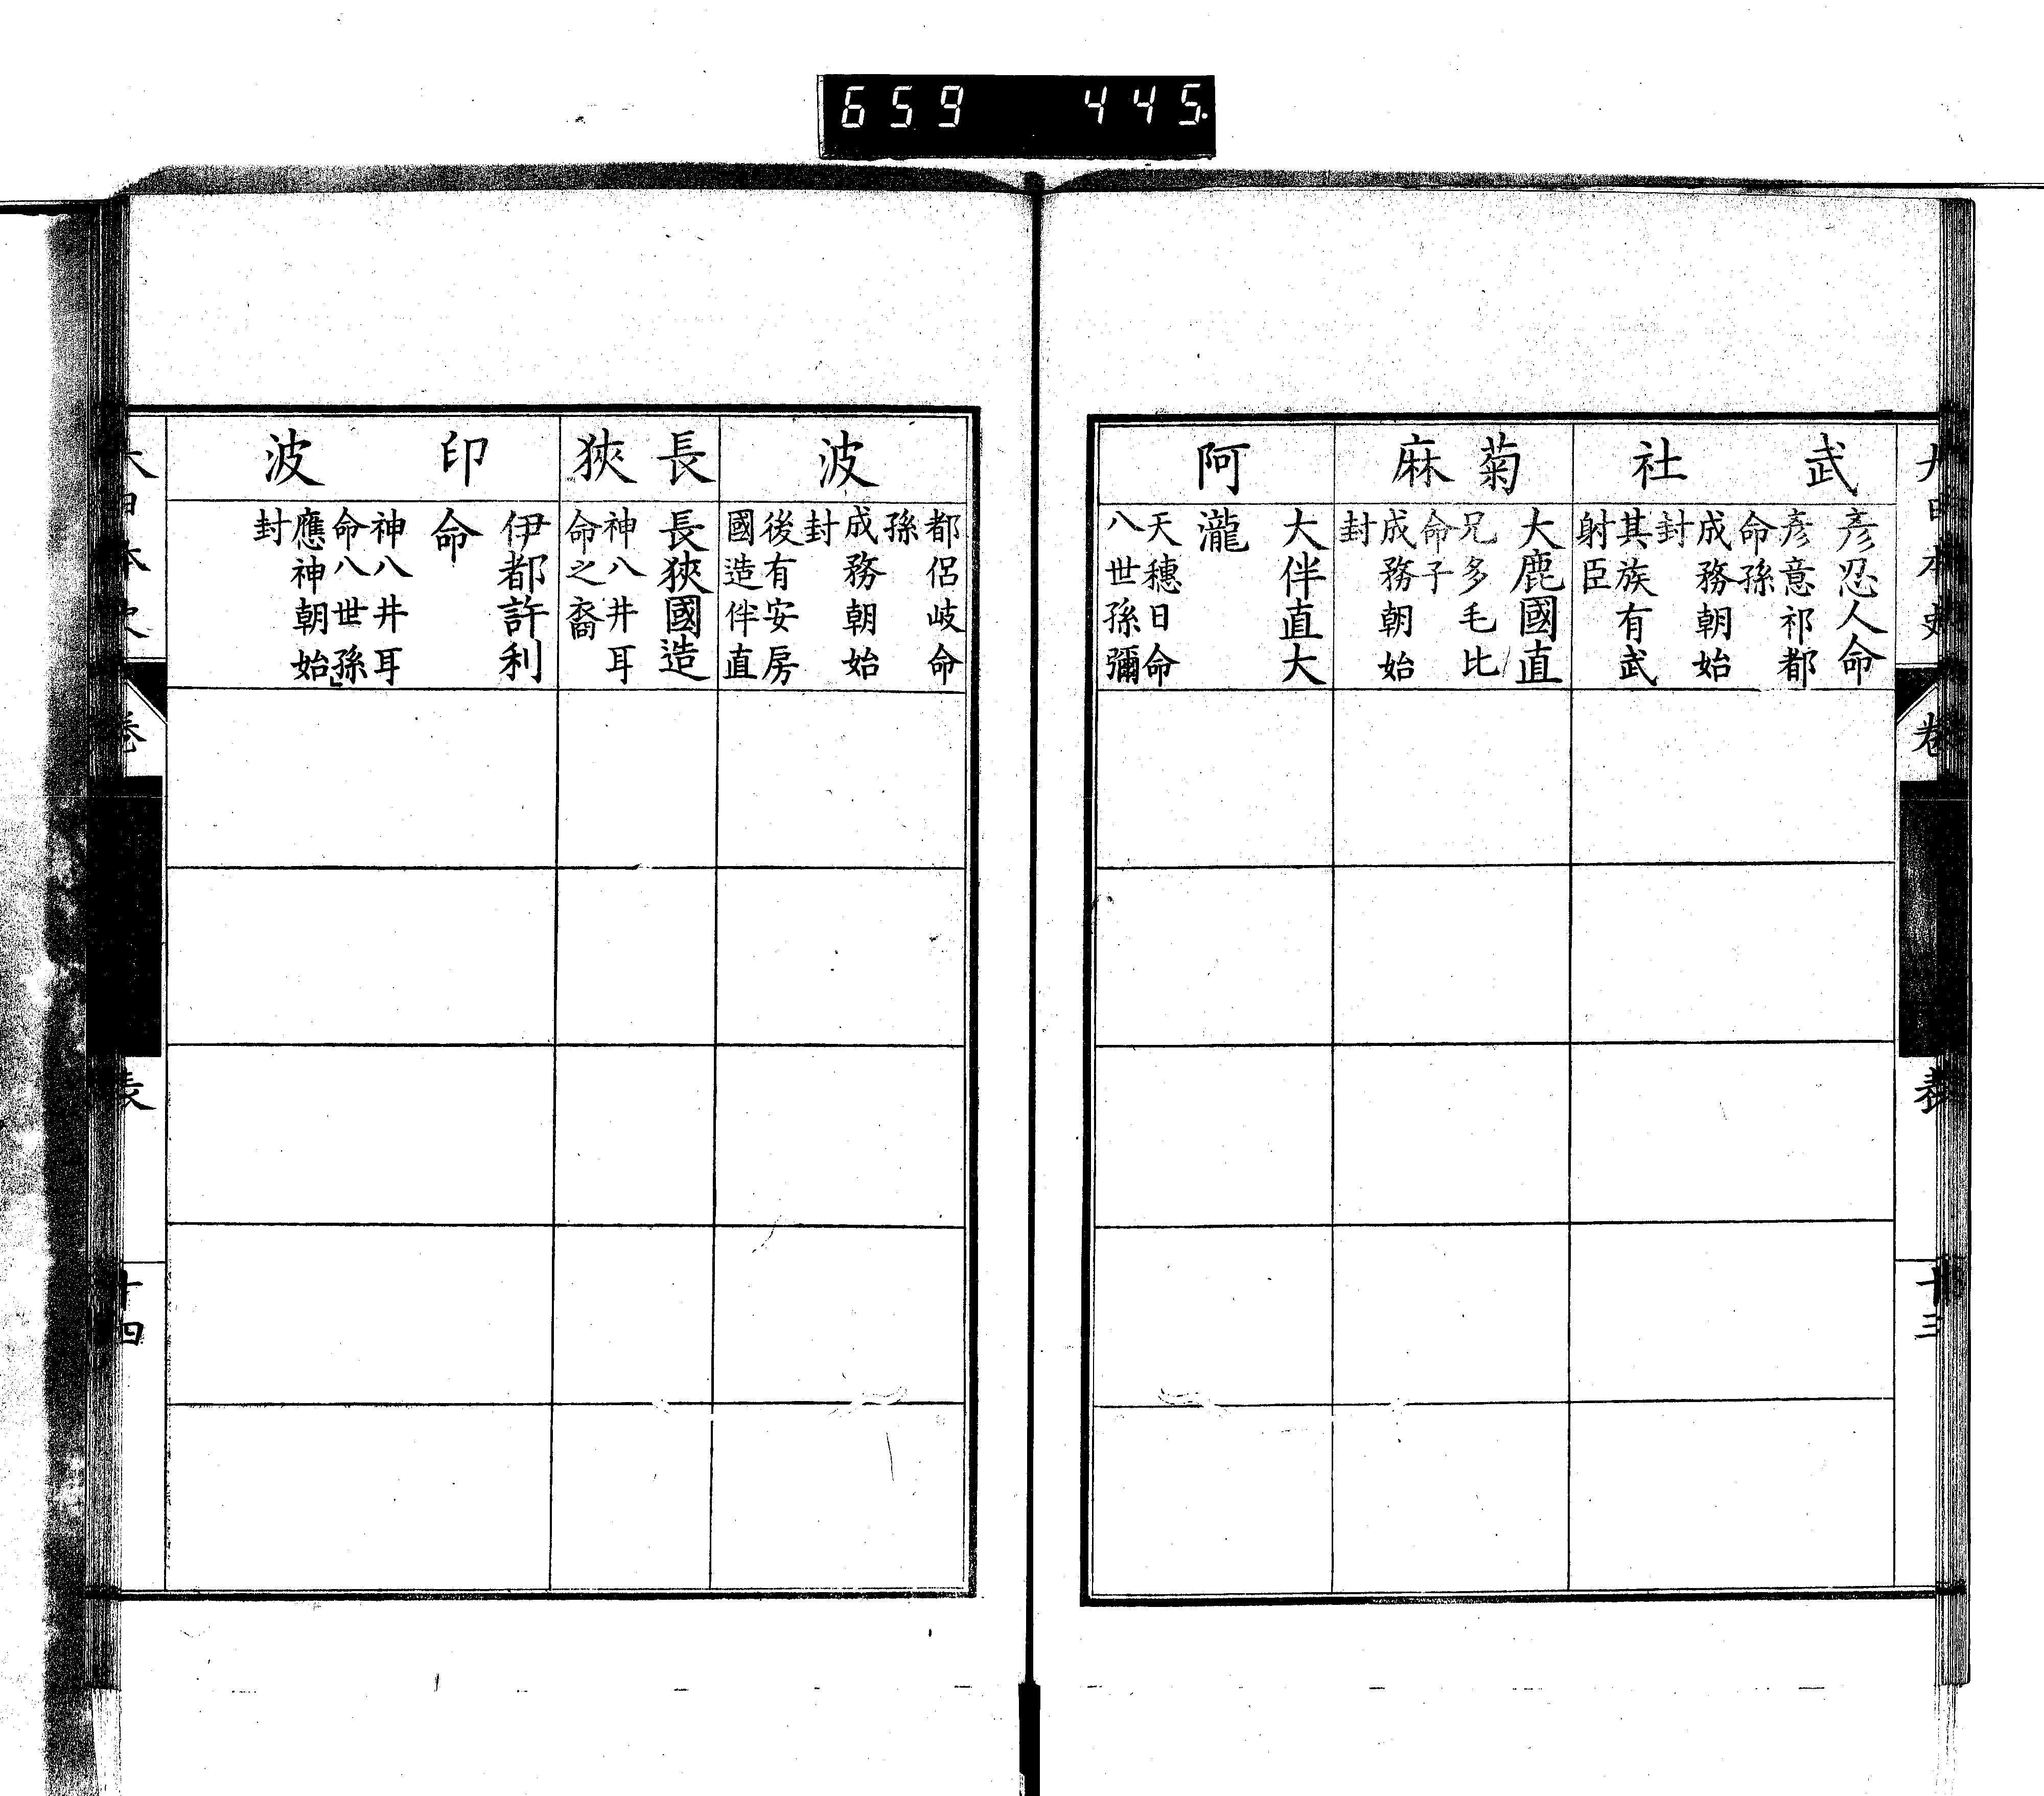 659 445.
大日本史
卷
表
十三
武社
彥忍人命
彥意祁都
命孫
成務朝始
封
其族有武
射臣
菊麻
大鹿國直
兄多毛比
命子
成務朝始
封
阿
大伴直大
瀧
天穗日命
八世孫彌
波
都侶岐命
孫
成務朝始
封
後有安房
國造伴直
長狹
長狹國造
神八井耳
命之裔
印波
伊都許利
命
神八井耳
命八世孫
應神朝始
封
大日本史
卷
表
十四